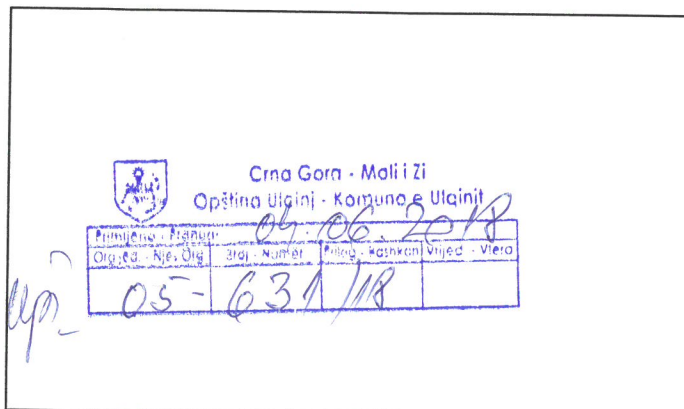 Crna Gora - Mali i Zi
Opština Ulcinj - Komuna e Ulqinit
Primljeno - Pranuar: 04.06.2018
Org.jed. - Njes.Org. Broj - Numër Prilog - Bashkan Vrijed - Vlera
05- 631/18